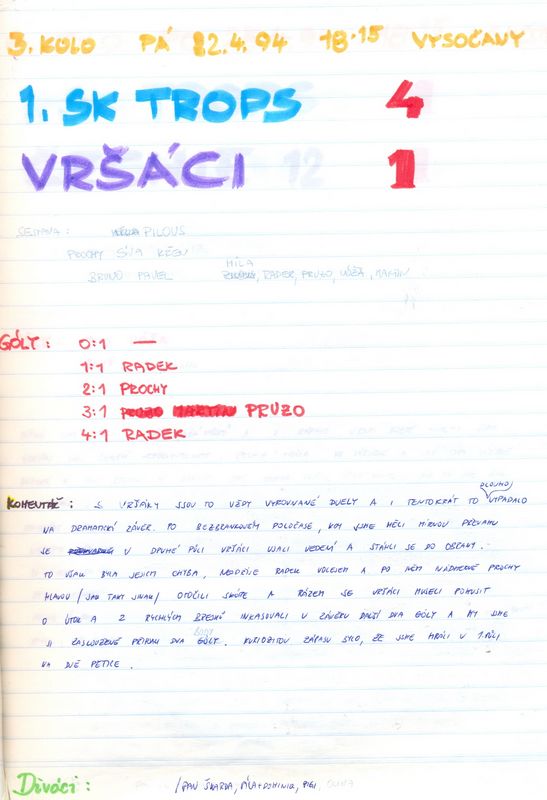 3. KOLO PÁ 22.4.94 18.15 VYSOČANY
1. SK TROPS 4
VRŠÁCI 1
SESTAVA: PILOUS
PROCHY SÍVA
HÍLA
BRUNO PAVEL RADEK, PRUZO, MARTIN
GÓLY: 0:1 —
1:1 RADEK
2:1 PROCHY
3:1 PRUZO
4:1 RADEK
DLOUHO
KOMENTÁŘ: S VRŠÁKY JSOU TO VŽDY VYROVNANÉ DUELY A I TENTOKRÁT TO VYPADALO
NA DRAMATICKÝ ZÁVĚR. PO BEZBRANKOVÉM POLOČASE, KDY JSME MĚLI MÍRNOU PŘEVAHU
SE V DRUHÉ PŮLI VRŠÁCI UJALI VEDENÍ A STÁHLI SE DO OBRANY.
TO VŠAK BYLA JEJICH CHYBA, NEJDŘÍVE RADEK VOLEJEM A PO NĚM NÁDHERNĚ PROCHY
HLAVOU /JAK TAKY JINAK/ OTOČILI SKÓRE A RÁZEM SE VRŠÁCI MUSELI POKUSIT
O ÚTOK A Z RYCHLÝCH BREJKŮ INKASOVALI V ZÁVĚRU DALŠÍ DVA GÓLY A MY JSME
BODY
SI ZASLOUŽENĚ PŘIPSALI DVA GÓLY. KURIOZITOU ZÁPASU BYLO, ŽE JSME HRÁLI V 1. PŮLI
NA DVĚ PĚTICE.
Diváci: /PAN ŠKARDA, PIGI,